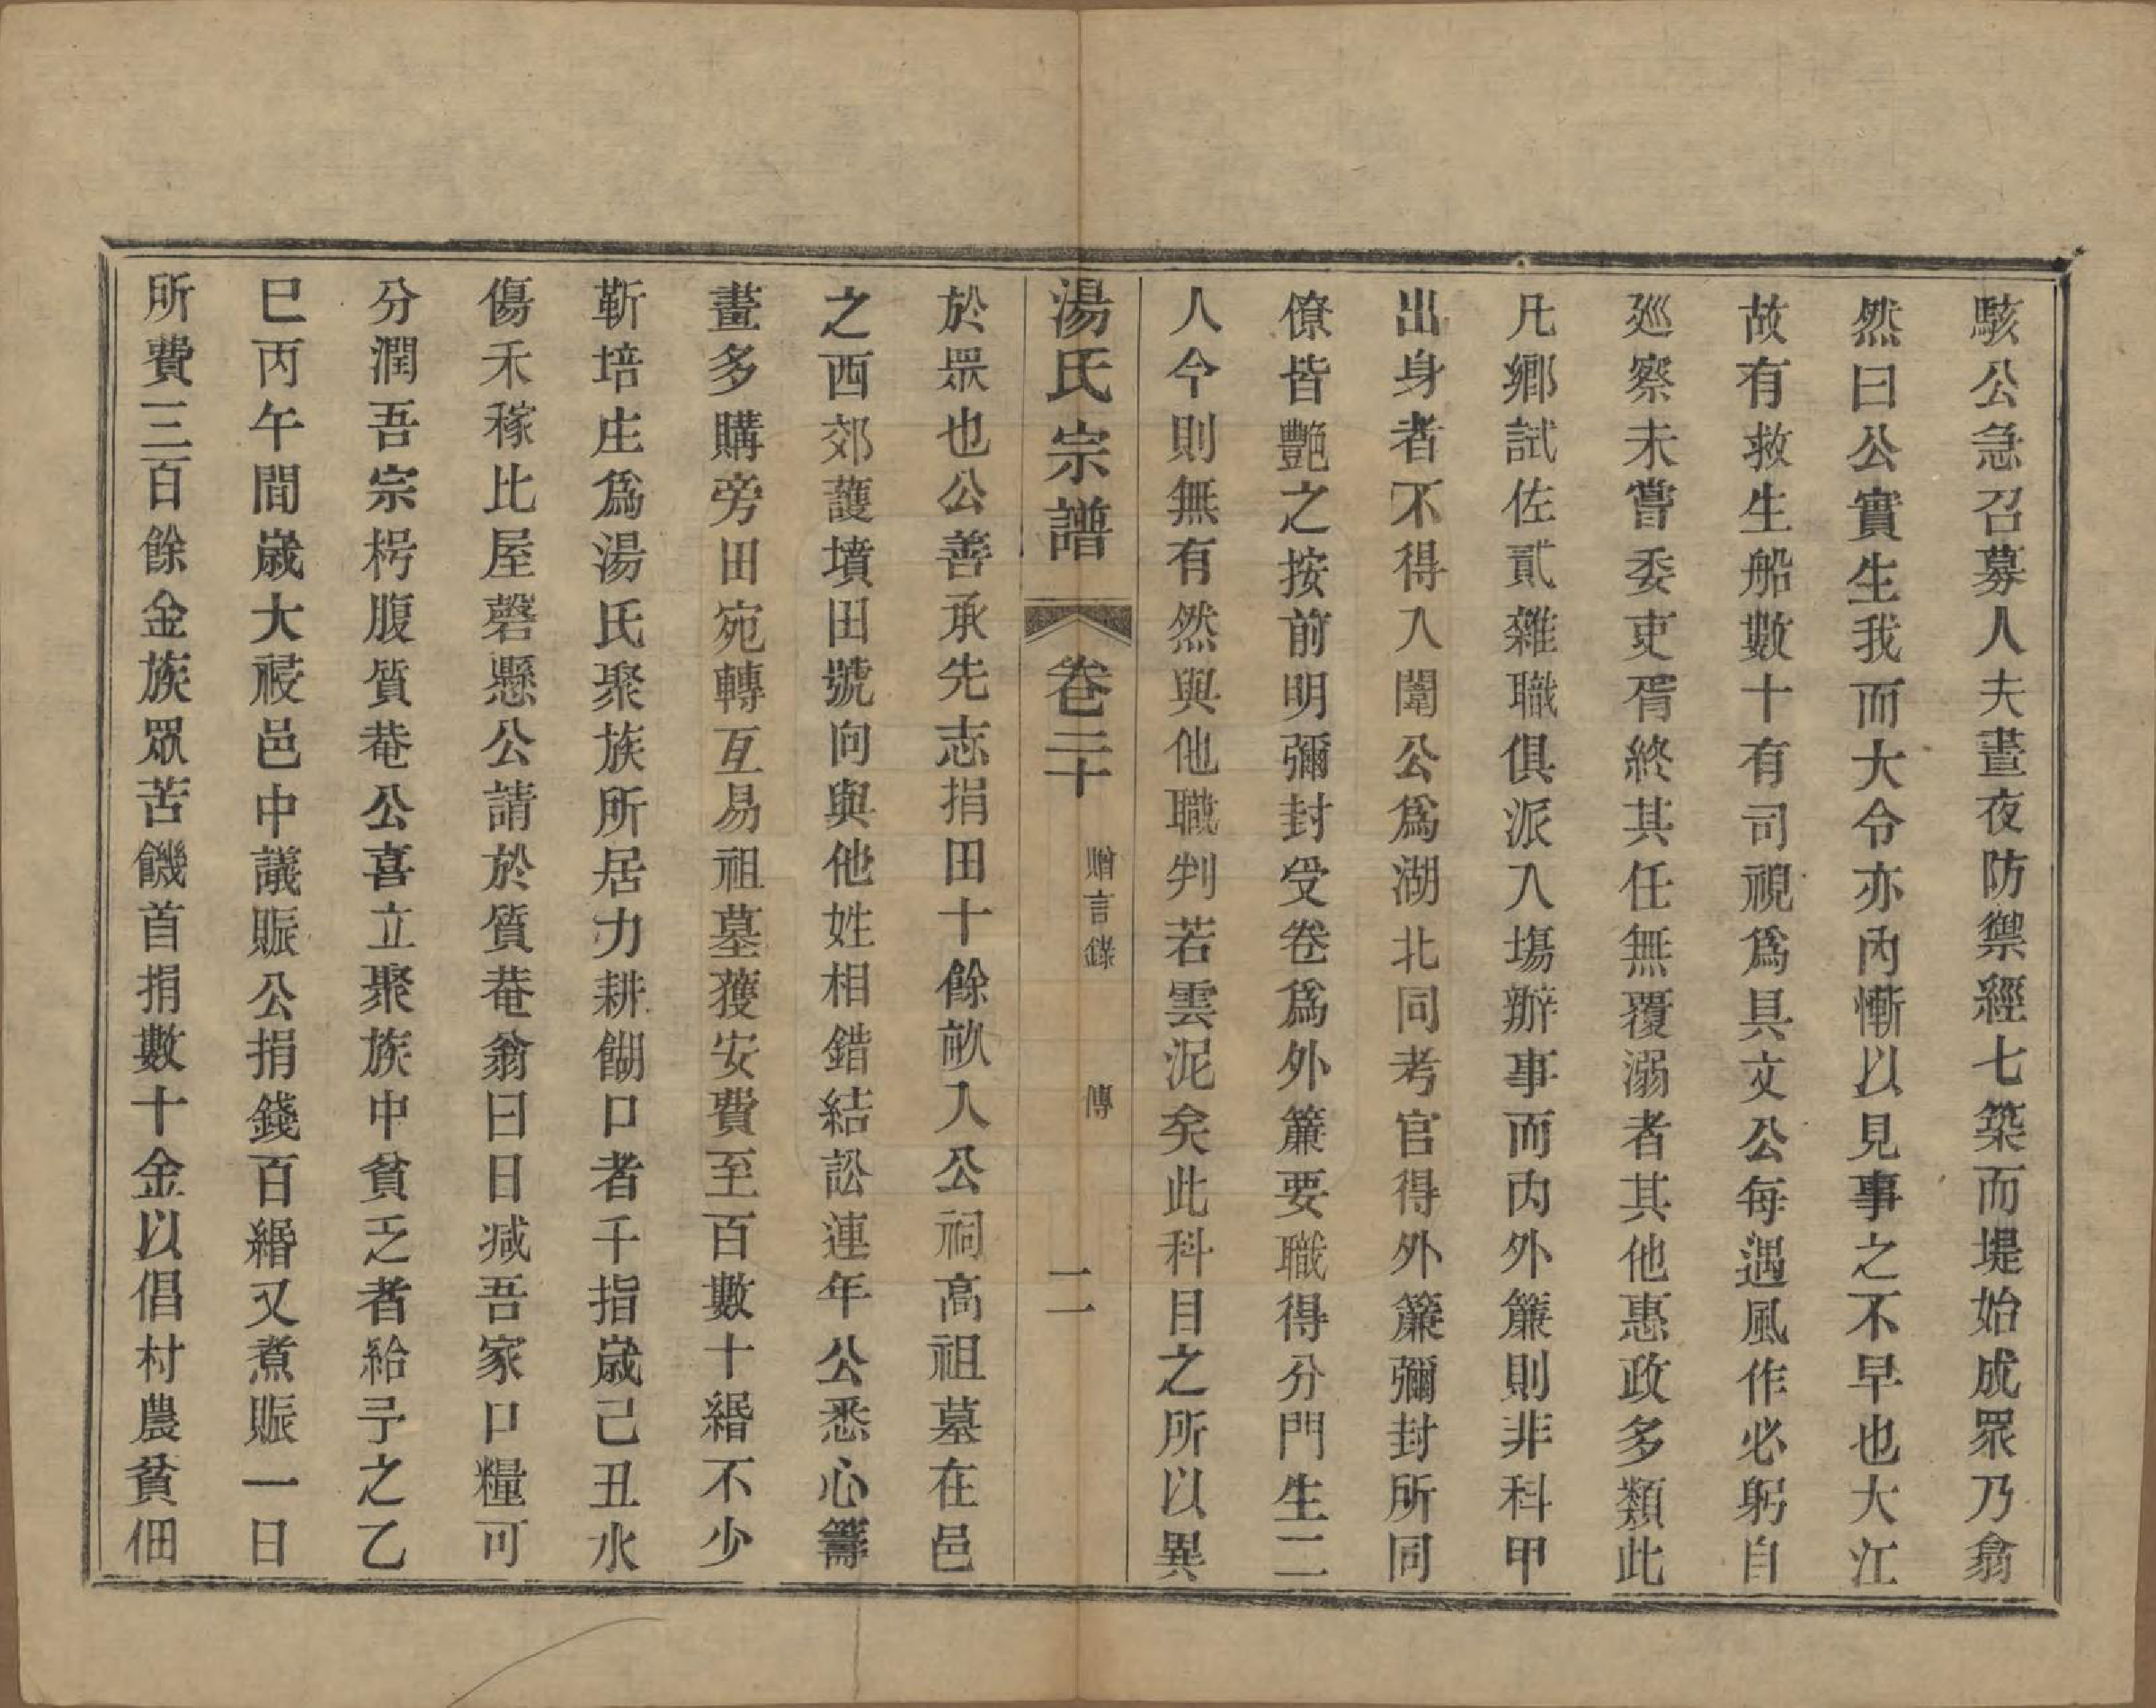 駭公急召募人夫晝夜防禦經七築而堤始成眾乃翕
然曰公實生我而大令亦內慚以見事之不早也大江
故有救生船數十有司視爲具文公每遇風作必躬自
廵察未嘗委吏胥終其任無覆溺者其他惠政多類此
凡鄉試佐貳雜職俱派入塲辦事而內外簾則非科甲
出身者不得入闈公爲湖北同考官得外簾彌封所同
僚皆艷之按前明彌封受卷爲外簾要職得分門生二
人今則無有然與他職判若雲泥矣此科目之所以異
湯氏宗譜　卷二十　贈言錄　傳　二
於眾也公善承先志捐田十餘畝入公祠高祖墓在邑
之西郊護墳田號向與他姓相錯結訟連年公悉心籌
畫多購旁田宛轉互易祖墓獲安費至百數十緡不少
靳培庄爲湯氏聚族所居力耕餬口者千指歲己丑水
傷禾稼比屋磬懸公請於質菴翁曰日减吾家口糧可
分潤吾宗枵腹質菴公喜立聚族中貧乏者給予之乙
巳丙午間歲大祲邑中議賑公捐錢百緡又煮賑一日
所費三百餘金族眾苦饑首捐數十金以倡村農貧佃